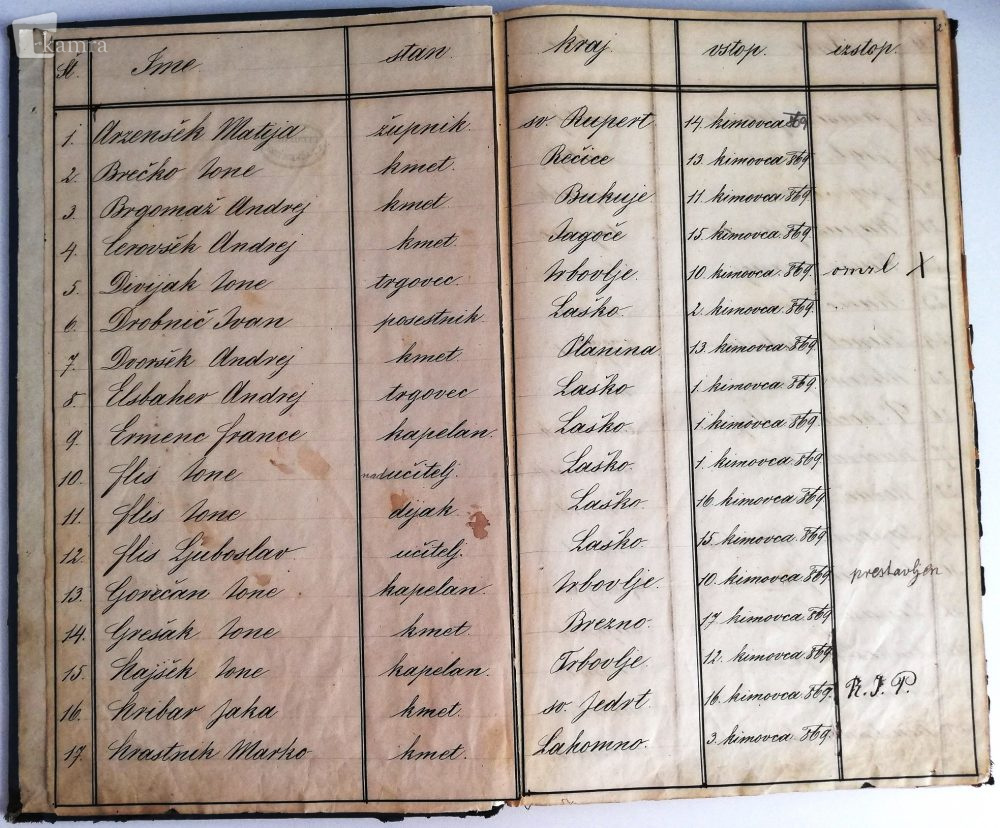 kamra
Št. Ime. stan. kraj. vstop. izstop. 2
1. Arzenšek Matija župnik. sv. Rupert 14. kimovca 869
2. Brečko Tone kmet. Rečice 13. kimovca 869
3. Brgomaž Andrej kmet. Bukuje 11. kimovca 869
4. Cerovšek Andrej kmet. Jagoče 15. kimovca 869
5. Divijak Tone trgovec. Trbovlje. 10. kimovca. 869. omrl X
6. Drobnič Ivan posestnik. Laško. 2. kimovca. 869.
7. Dvoršek Andrej kmet. Planina 13. kimovca. 869.
8. Elsbaher Andrej trgovec Laško 1. kimovca. 869.
9. Ermenc France kapelan. Laško. 1. kimovca. 869.
10. Flis Tone nadučitelj. Laško. 1. kimovca. 869.
11. Flis Tone dijak. Laško. 16. kimovca 869.
12. Flis Ljuboslav učitelj. Laško. 15. kimovca. 869.
13. Gorečan Tone kapelan. Trbovlje. 10. kimovca 869. prestavljen
14. Grešak Tone kmet. Brezno. 17. kimovca. 869.
15. Hajšek Tone kapelan. Trbovlje. 12. kimovca. 869.
16. Hribar Jaka kmet. sv. Jedrt. 16. kimovca. 869. R. I. P.
17. Hrastnik Marko kmet. Lahomno. 3. kimovca. 869.